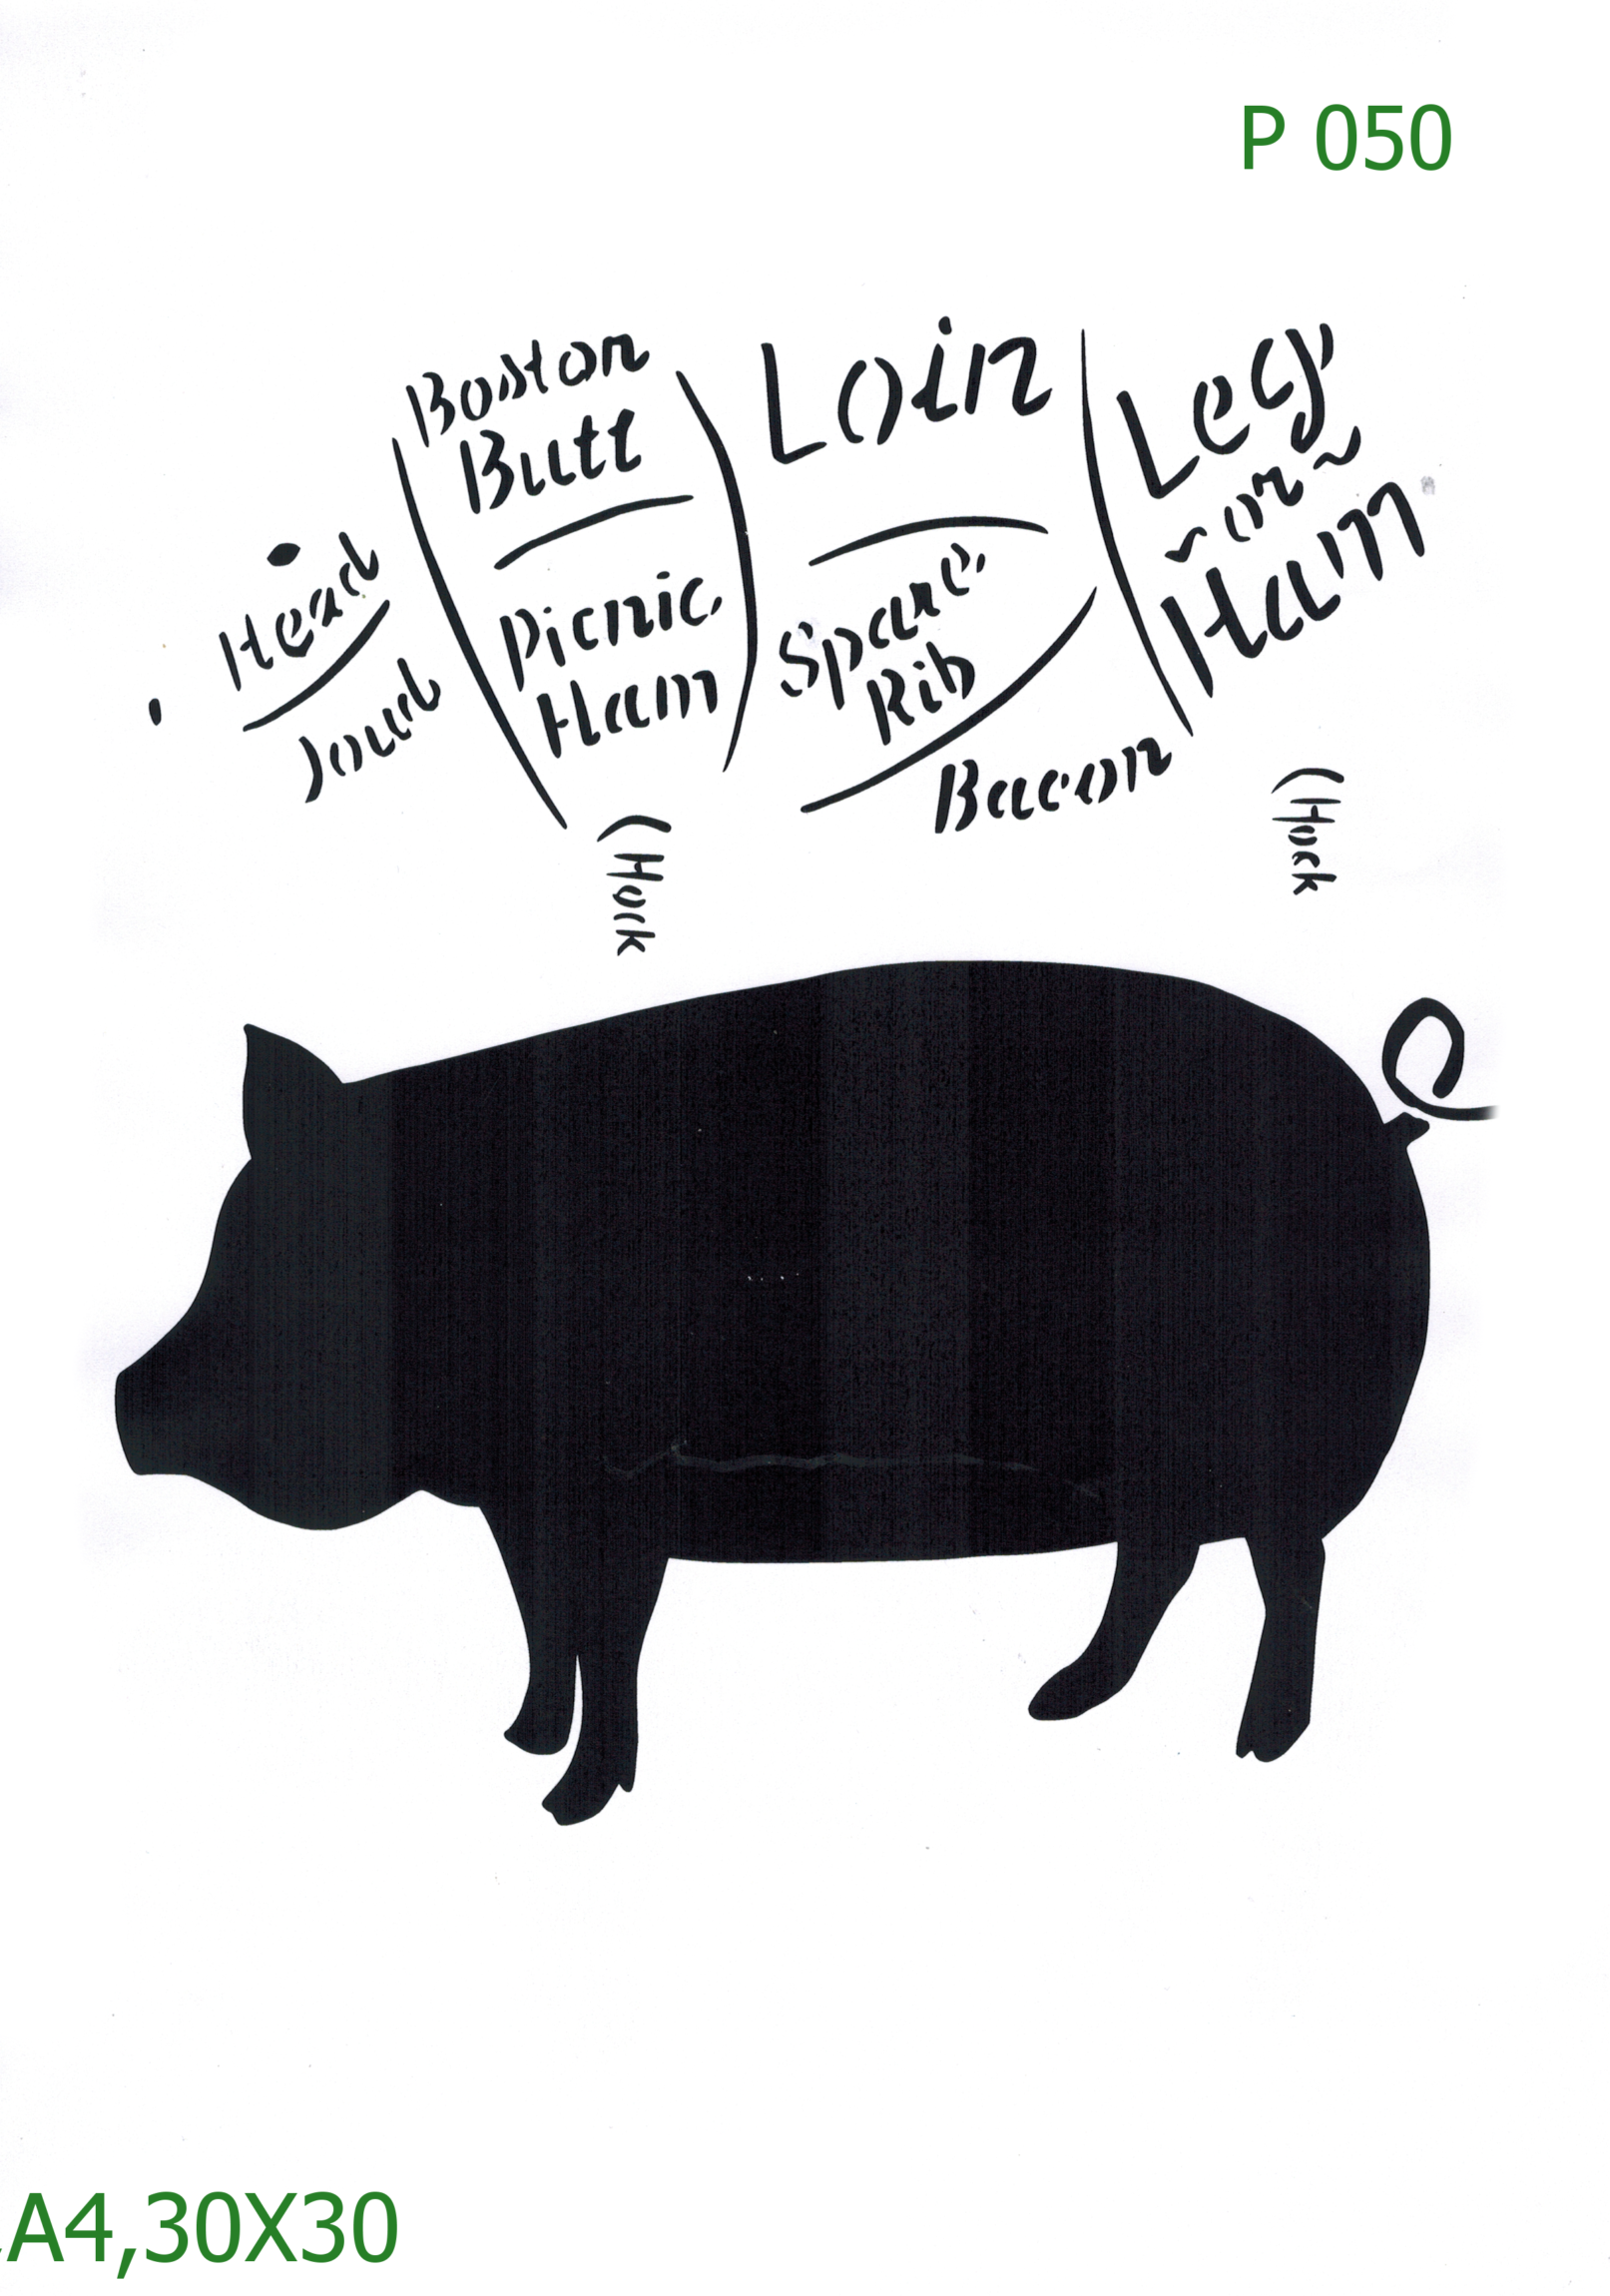 P 050
Boston
Butt
Loin
Leg
~or~
Ham
Head
Jowl
Picnic
Ham
Spare
Rib
Bacon
(Hock
(Hock
A4,30X30